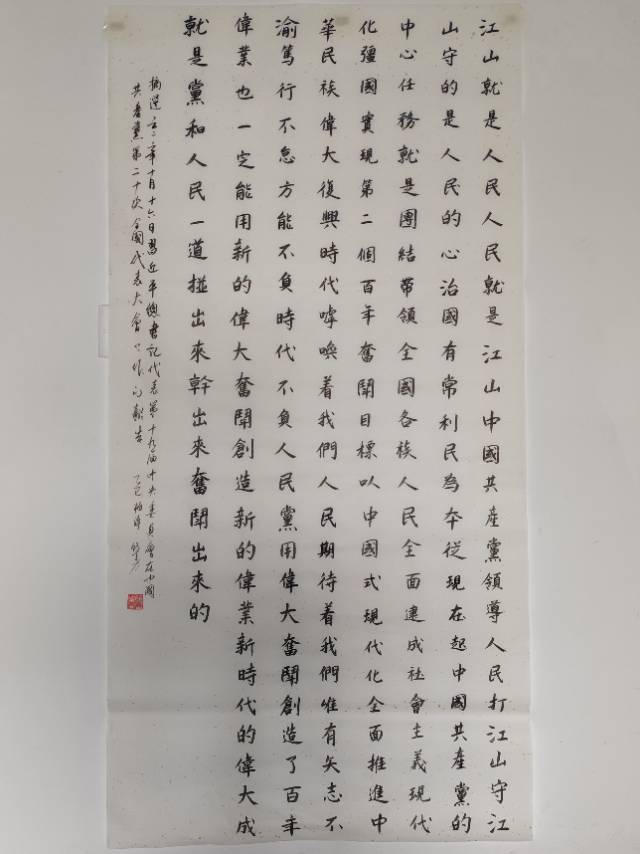 江山就是人民人民就是江山中國共産黨領導人民打江山守江
山守的是人民的心治國有常利民為本從現在起中國共産黨的
中心任務就是團結帶領全國各族人民全面建成社會主義現代
化彊國實現第二個百年奮鬪目標以中國式現代化全面推進中
華民族偉大復興時代呼喚着我們人民期待着我們唯有矢志不
渝篤行不怠方能不負時代不負人民黨用偉大奮鬪創造了百年
偉業也一定能用新的偉大奮鬪創造新的偉業新時代的偉大成
就是黨和人民一道拼出來幹出來奮鬪出來的
摘選年十月十六日習近平總書記代表第十九届中央委員會在中國
共產黨第二十次全國代表大會上作的報告